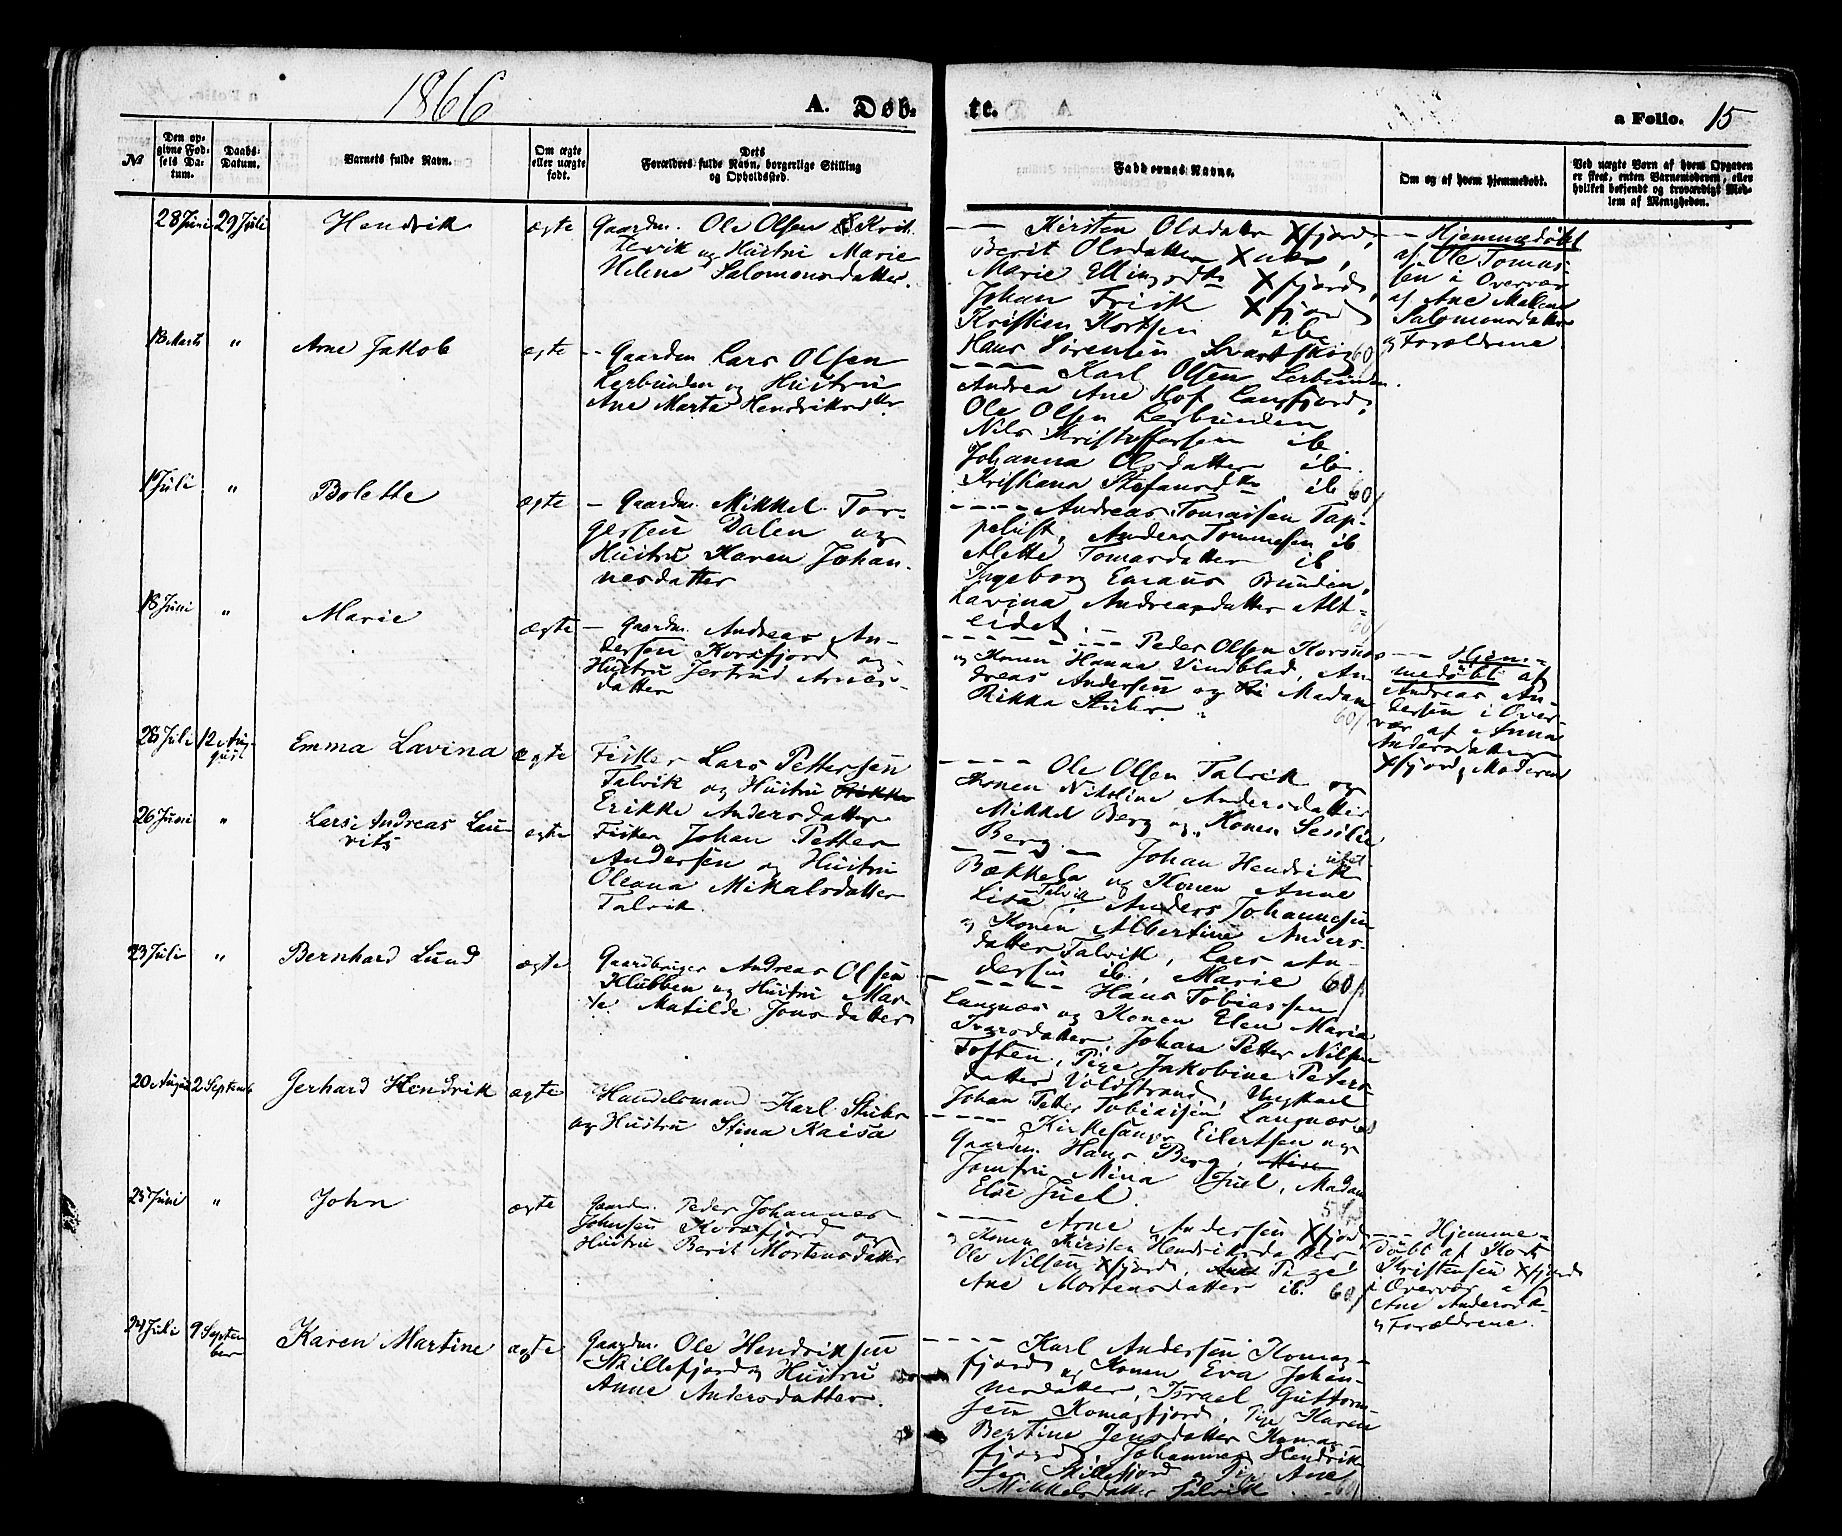 1866
A. Døb-
te.
a Folio. 15
№
Den op-
givne Fød-
sels Da-
tum.
Daabs-
Datum.
Barnets fulde Navn.
Om ægte
eller uægte
født.
Dets
Forældres fulde Navn, borgerlige Stilling
og Opholdssted.
Faddernes Navne.
Om og af hvem hjemmedøbt.
Ved uægte Børn af hvem Opgaven
er skeet, enten Barnemoderen, eller
hvilket bekjendt og troværdigt Med-
lem af Menigheden.
28 Juni 29 Juli Hendrik ægte
Gaardm. Ole Olsen
og Hustru Marie
Helene Salomonsdatter.
Kirsten Olsdatter Xfjord,
Berit Olsdatter
Marie Xfjord,
Johan Frisk Xfjord
Kristian ib
Hans Sørensen 60
Hjemmedøbt
af Ole Tomas-
sen i Overvær
af Ane Malene
Salomonsdatter
og Forældrene.
18 Marts " Arne Jakob ægte
- Gaardm Lars Olsen
Lerbunden og Hustru
Ane Marta Hendriksdtr.
Karl Olsen Lerbunden
Andrea Ane Hof Langfjord,
Ole Olsen Lerbunden
Nils Kristoffersen ib
Johanna Olsdatter ib.
Kristiana Stefansdtr ib 60/
1 Juli " Bolette ægte
- Gaardm. Mikkel Tor-
gersen Dalen og
Hustru Karen Johan-
nesdatter
Andreas Tomassen Tap-
peluft, Anders Tommesen ib
Alette Tomasdatter ib
Ingeborg Emaus Bunden,
Lavina Andreasdatter Alt-
eidet.
18 Juni " Marie ægte
- Gaardm. Andreas An-
dersen Korsfjord og
Hustru Jertrud Arnes-
datter
Peder Olsen Korsnes
og Konen Hanna Vindblad, An-
dreas Andersen og Madam
Rikka Stuhr. 60/
Hjem-
medøbt af
Andreas An-
dersen i Over-
vær af Anna
Andersdatter
Xfjord, Moderen
28 Juli 12 Aug-
gust Emma Lavina ægte
Fisker Lars Pettersen
Talvik og Hustru
Erikke Andersdatter
Ole Olsen Talvik og
Konen Nikoline Andersdatter
Mikkel Berg og Konen Sesilie
Berg.
26 Juni " Lars Andreas Lau-
rits ægte
Fisker Johan Petter
Andersen og Hustru
Oleana Mikalsdatter
Talvik.
Johan Hendrik
Bækkela og Konen Anne
Lisa Talvik, Anders Johannesen
og Konen Albertine Anders-
datter Talvik, Lars An-
dersen ib, Marie 60/
23 Juli " Bernhard Lund ægte
Gaardbruger Andreas Olsen
Klubben og Hustru Mar-
te Matilde Jonsdatter
Hans Tobiassen
Langnæs og Konen Elen Maria
Ivarsdatter, Johan Petter Nilsen
Toften, Pige Jakobine Peters-
datter Voldstrand, Ungkarl
Johan Petter Tobiassen Langnæs
20 August 2 Septemb Gerhard Hendrik ægte
Handelsmand Karl Stuhr
og Hustru Stina Kaisa
Kirkesanger Eilertsen og
Gaardm. Hans Berg,
Jomfru Mina Juel, Madam
Else Juel
25 Juni " John ægte
Gaardm. Peder Johannes
Johnsen Korsfjord og
Hustru Berit Mortensdatter
Arne Andersen Xfjord
og Konen Kirsten Hendriksdatter
Ole Nilsen Xfjord, Pige
Ane Mortensdatter ib. 60/
Hjemme-
døbt af Kort
Kristensen Xfjord
i Overvær af
Ane Andersd
og Forældrene.
24 Juli 9 Septem-
ber Karen Martine ægte
Gaardm. Ole Hendriksen
Skillefjord og Hustru
Anne Andersdatter.
Karl Andersen Komag-
fjord og Konen Eva Johan-
nesdatter, Israel Guttorm-
sen Komagfjord, Pige Karen
Bertine Jensdatter Komag-
fjord, Johannes Hendrik-
sen Skillefjord og Pige Ane
Mikkelsdatter Talvik 60/